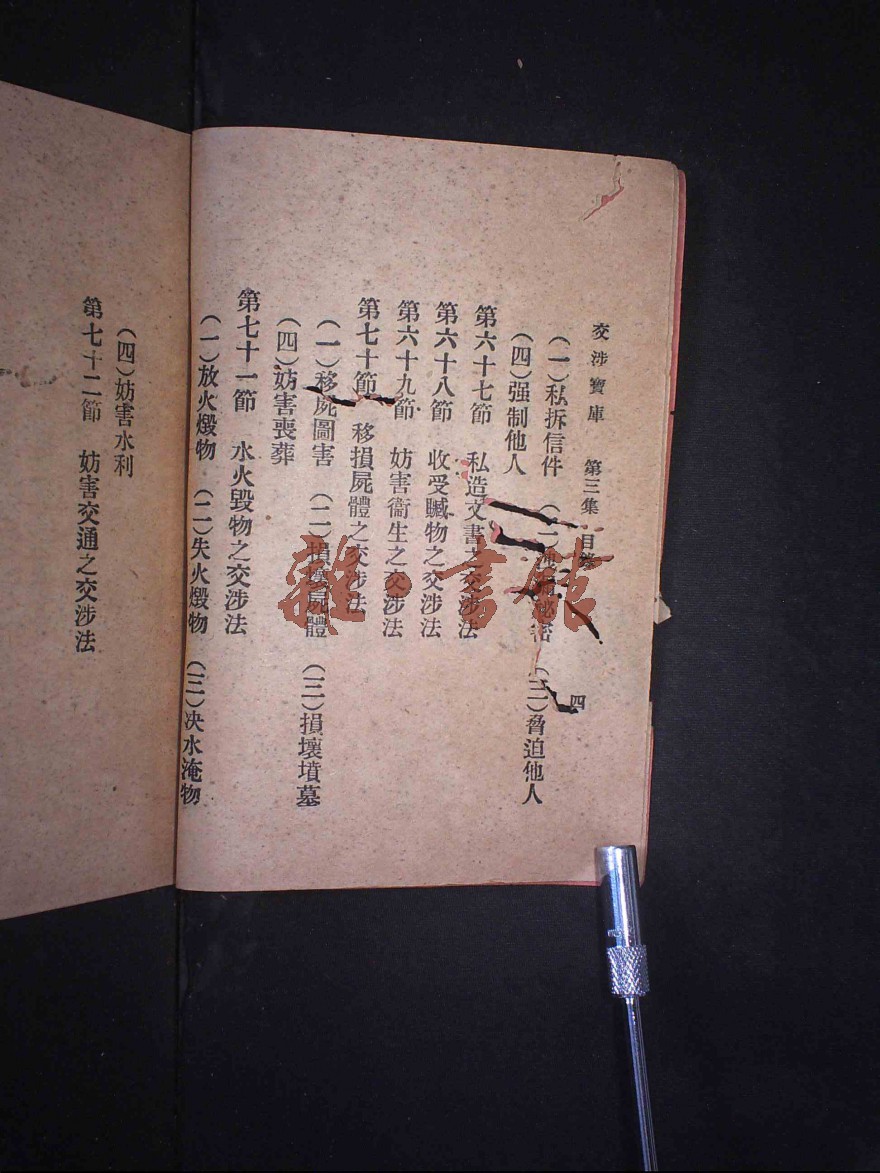 交涉寶庫　第三集　目錄　四
（一）私拆信件　（二）洩漏秘密　（三）脅迫他人
（四）强制他人
第六十七節　私造文書之交涉法
第六十八節　收受贓物之交涉法
第六十九節　妨害衞生之交涉法
第七十節　移損屍體之交涉法
（一）移屍圖害　（二）損壞屍體　（三）損壞墳墓
（四）妨害喪葬
第七十一節　水火毀物之交涉法
（一）放火燬物　（二）失火燬物　（三）决水淹物
（四）妨害水利
第七十二節　妨害交通之交涉法
雜·書館